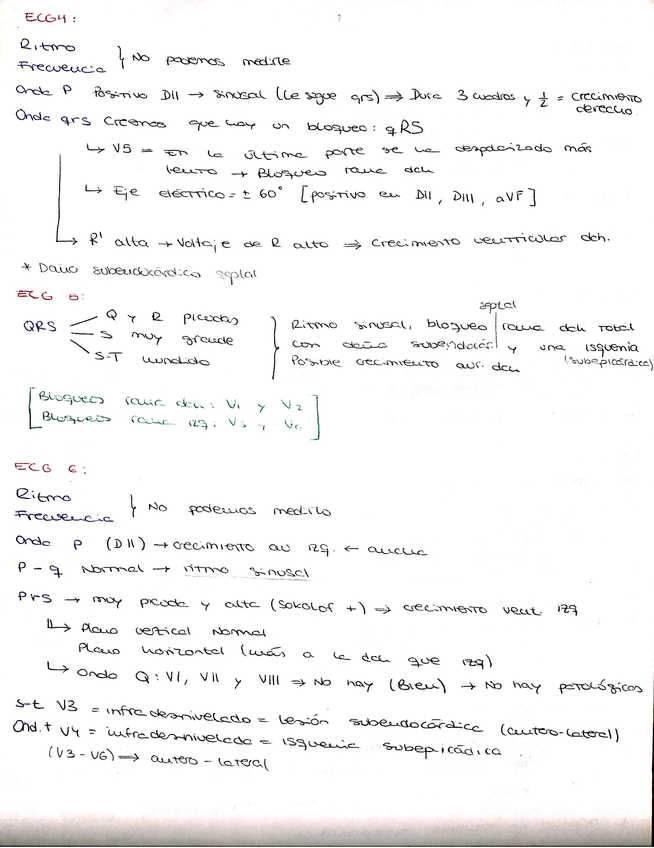 ECG4:
Ritmo
Frecuencia } No podemos medirle
Onda P Positivo DII → sinusal (Le sigue qrs) ⇒ Dura 3 cuadros y 1/2 = crecimiento derecho
Onda qrs Creemos que hay un bloqueo: qRS
↳ V5 = En la última parte se ha despolarizado más
lento → Bloqueo rama dch
↳ Eje eléctrico = ± 60° [positivo en DII, DIII, aVF]
↳ R' alta → Voltaje de R alto ⇒ crecimiento ventricular dch.
* Daño subendocárdico septal
ECG 5:
QRS
Q y R picudas
S muy grande
S-T hundido
septal
Ritmo sinusal, bloqueo rama dch Total
con daño subendocár y una isquemia
(subepicárdica)
Posible crecimiento aur. dch
[Bloqueos rama dch: V1 y V2
Bloqueos rama izq: V5 y V6]
ECG 6:
Ritmo
Frecuencia } No podemos medirlo
Onda P (DII) → crecimiento au izq. ← ancha
P-q Normal → ritmo sinusal
Prs → muy picuda y alta (Sokolof +) ⇒ crecimiento vent. izq
↳ Plano vertical Normal
Plano horizontal (más a la dch que izq)
↳ Onda Q: VI, VII y VIII ⇒ No hay (Bien) → No hay patológicos
S-t V3 = infradesnivelado = Lesión subendocárdica (antero-lateral)
Ond.t V4 = infradesnivelada = isquemia subepicádica
(V3-V6) ⇒ antero-lateral